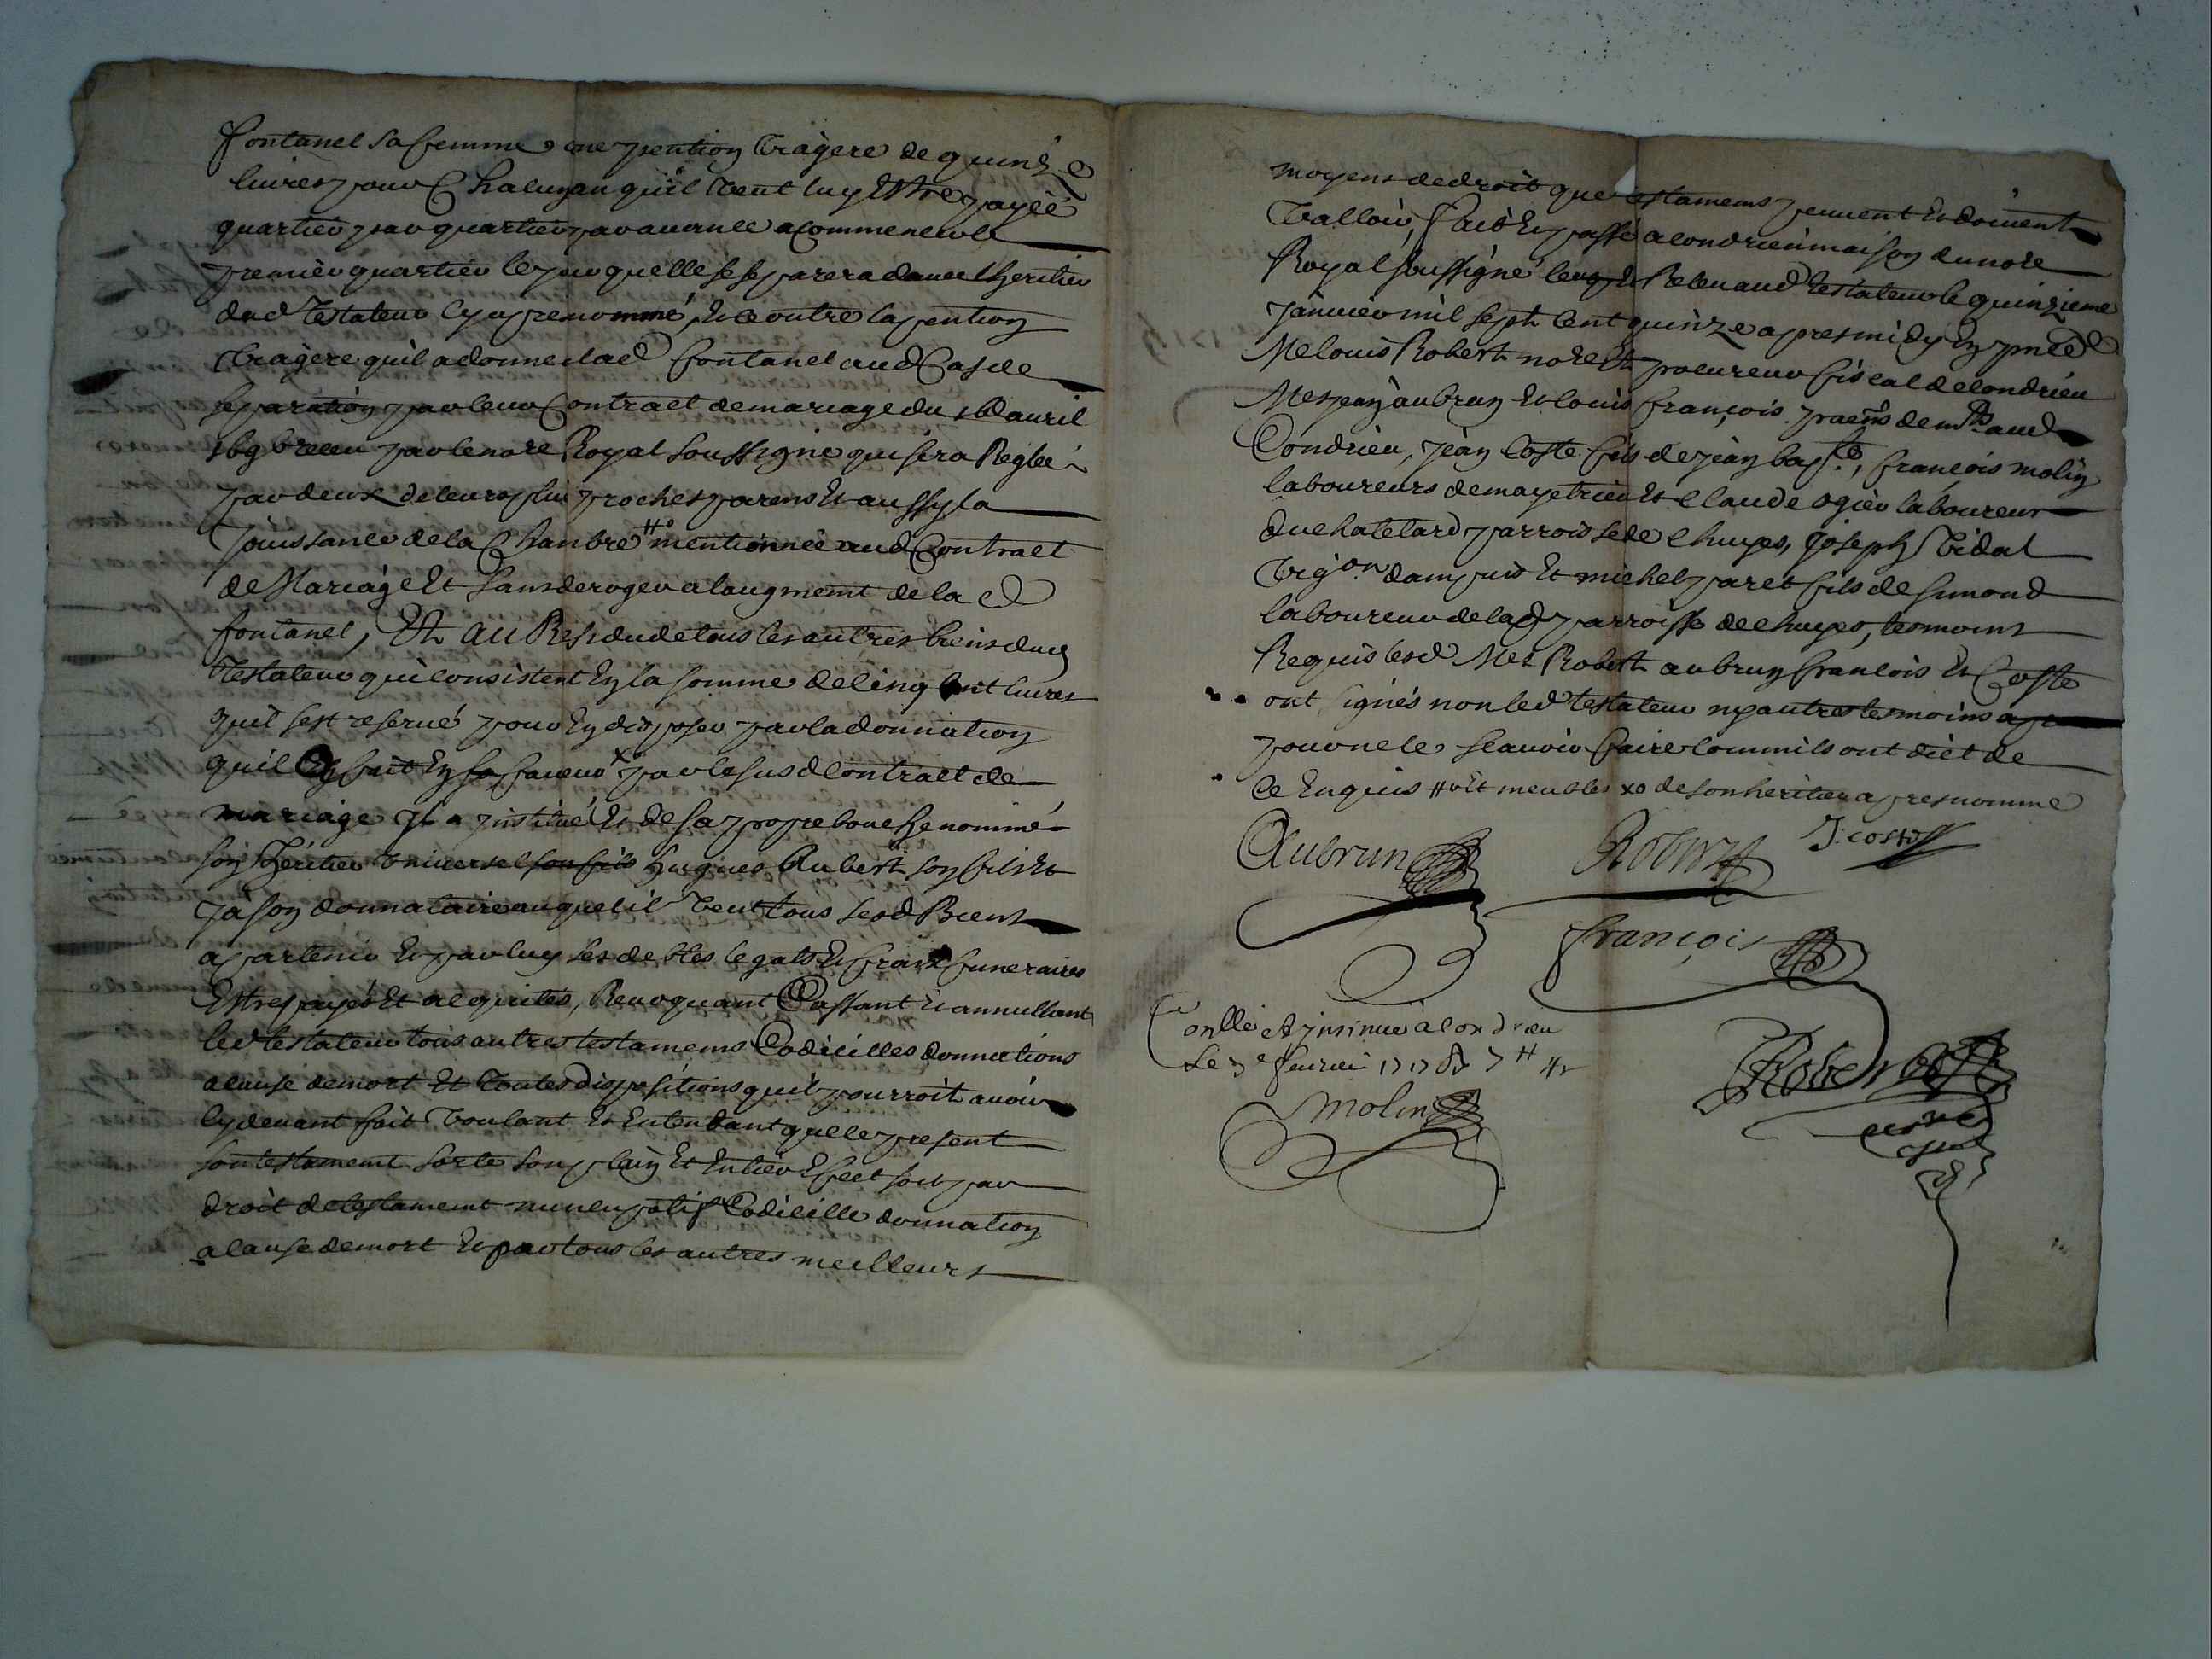 fontanel sa femme une pention viagere de quinze
livres pour Chacun an qu'il veut luy Estre payée
quartier par quartier par avance a commencer le
premier quartier le jour quelle se separera davec lheritier
dud Testateur cy apres nommé, Et ce outre la pention
viagere quil a donnee a lad fontanel aud Cas de
separation par leur Contract de mariage du avril
receu par le nore Royal soussigné qui sera Reglée
par deux de leurs plus proches parens Et aussy la
Jouissance de la Chambre #o mentionnée aud Contract
de Mariage Et sans deroger a laugment de la d
fontanel, Et au Residu de tous les autres biens dud
Testateur qui consistent En la somme de cinq cent livres
quil sest reservé pour En disposer par la donnation
quil En fait En sa faveur xo par le susd Contract de
mariage Il a institué Et de sa propre bouche nommé
son Heritier universel son fils hugues Aubert son fils Et
ja son donnataire auquel il veut tous sesd Biens
apartenir Et par luy ses debtes legats Et fraix funeraires
Estre payés Et acquites, Revoquant Cassant Et annullant
led testateur tous autres testamens Codicilles donnations
a cause de mort Et toutes dispositions quil pourroit avoir
cy devant fait Voulant Et Entendant que le present
son testament sorte son plain Et Entier Effect soit par
droit de testament nuncupatif Codicille donnation
a cause de mort Et par tous les autres meilleurs
moyens de droit que testamens peuvent Et doivent
Valloir, Fait Et passé a Condrieu maison du nore
Royal soussigné led testateur le quinzieme
Janvier mil sept cent quinze apres midy En pnce de
Me louis Robert nore Et procureur fiscal de Condrieu
Mes jean aubrun Et louis françois praens demts aud
Condrieu, jean Coste fils de jean bapte, françois molin
laboureurs de mapetrieu Et Claude ogier laboureur
du chatelard parroisse de chuyes, Joseph Vidal
Vigon dampuis Et michel paret fils de simond
laboureur de lad parroisse de chuyes, tesmoins
Requis lesd Mes Robert aubrun francois Et Coste
ont signés non led testateur ny autres tesmoins
pour ne le sçavoir faire comm'ils ont dict de
ce Enquis #o Et meubles xo de son heritier apres nomme
Aubrun Robert J. coste
françois
Conllé et insinué a Condrieu
Le 3e fevrier 1715
Molin
Robert